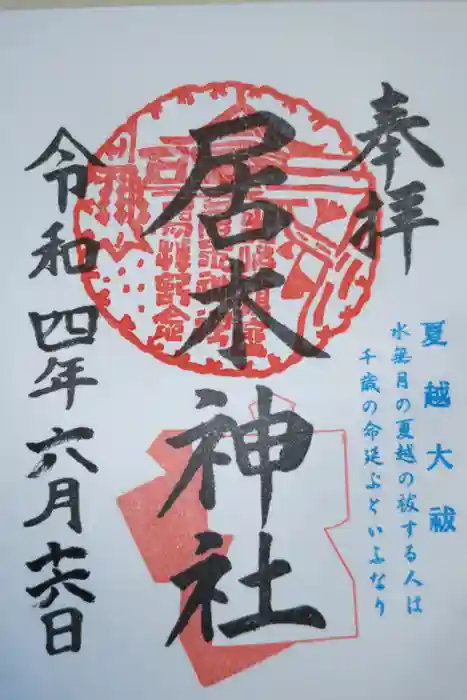 奉拝
夏越大祓
水無月の夏越の祓する人は
千歳の命延ぶといふなり
居木神社
令和四年六月十六日